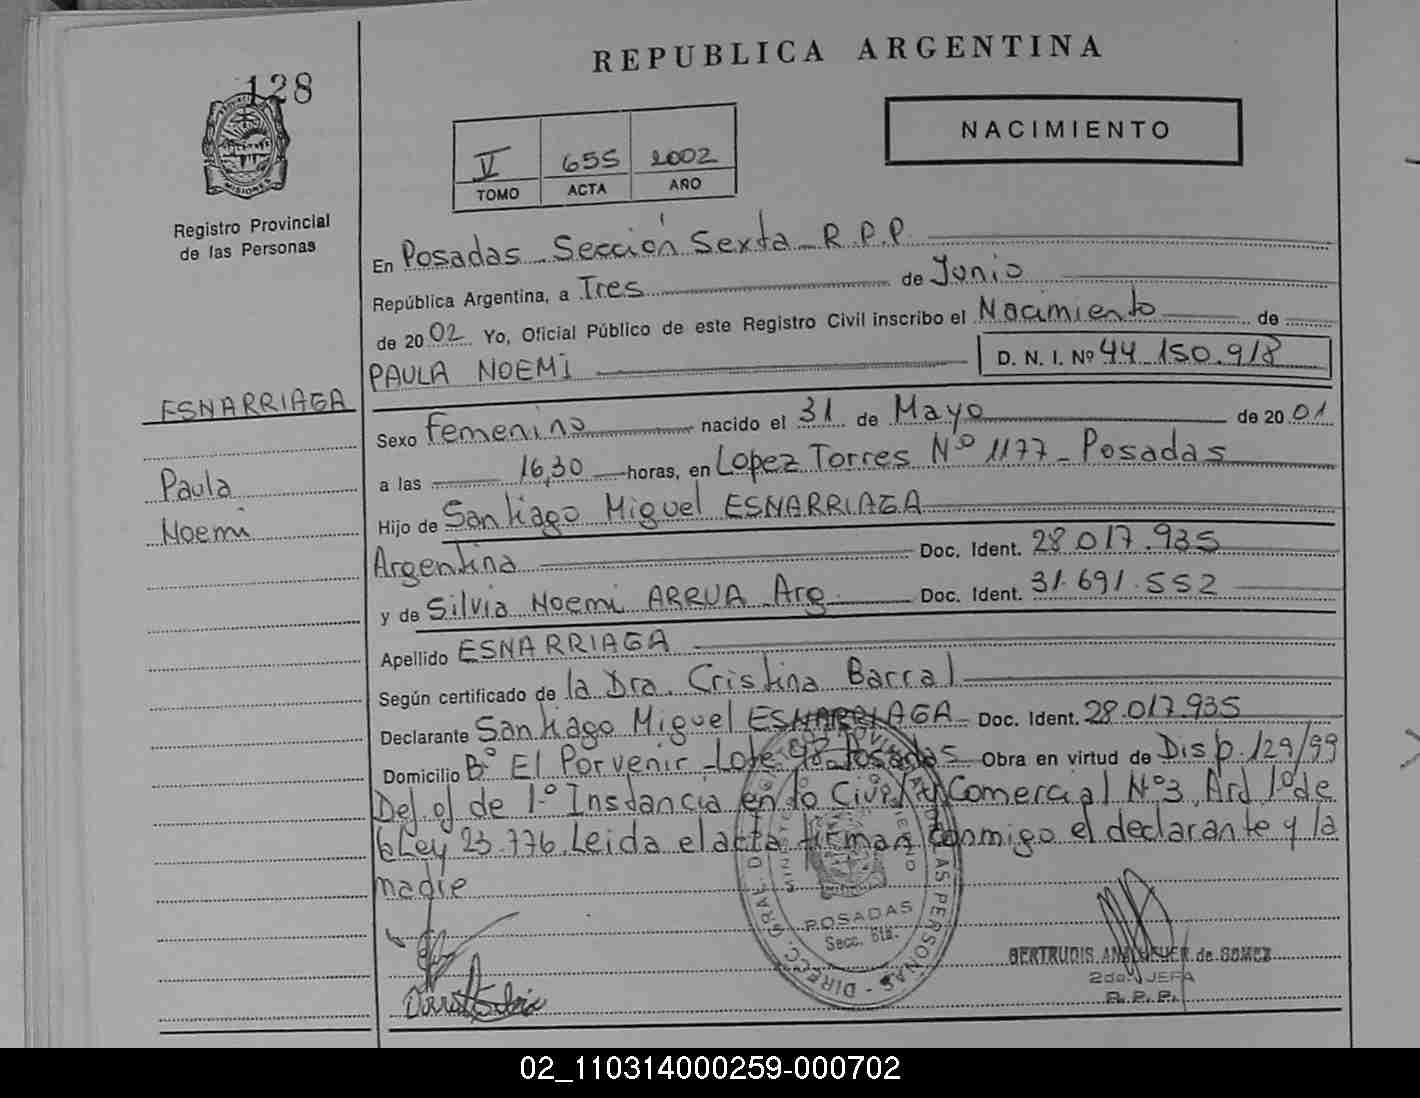 REPUBLICA ARGENTINA
128
NACIMIENTO
V 655 2002
TOMO ACTA AÑO
MISIONES
Registro Provincial
de las Personas
En Posadas Sección Sexta R.P.P.
República Argentina, a Tres de Junio
de 2002 Yo, Oficial Público de este Registro Civil inscribo el Nacimiento de
PAULA NOEMI D. N. I. Nº 44.150.918
ESNARRIAGA
Paula
Noemi
Sexo Femenino nacido el 31 de Mayo de 2001
a las 16,30 horas, en Lopez Torres Nº 1177 - Posadas
Hijo de Santiago Miguel ESNARRIAGA
Argentina Doc. Ident. 28.017.935
y de Silvia Noemi ARRUA Arg. Doc. Ident. 31.691.552
Apellido ESNARRIAGA
Según certificado de la Dra. Cristina Barral
Declarante Santiago Miguel ESNARRIAGA Doc. Ident. 28.017.935
Domicilio Bº El Porvenir - Lote 98 - Posadas Obra en virtud de Disp. 129/99
de 1º Instancia en lo Civil Comercial Nº 3, 1º de
Ley 23.776. Leida el acta firman conmigo el declarante y la
madre
POSADAS
Secc. 6ta.
de GOMEZ
2da. JEFA
R.P.P.
02_110314000259-000702